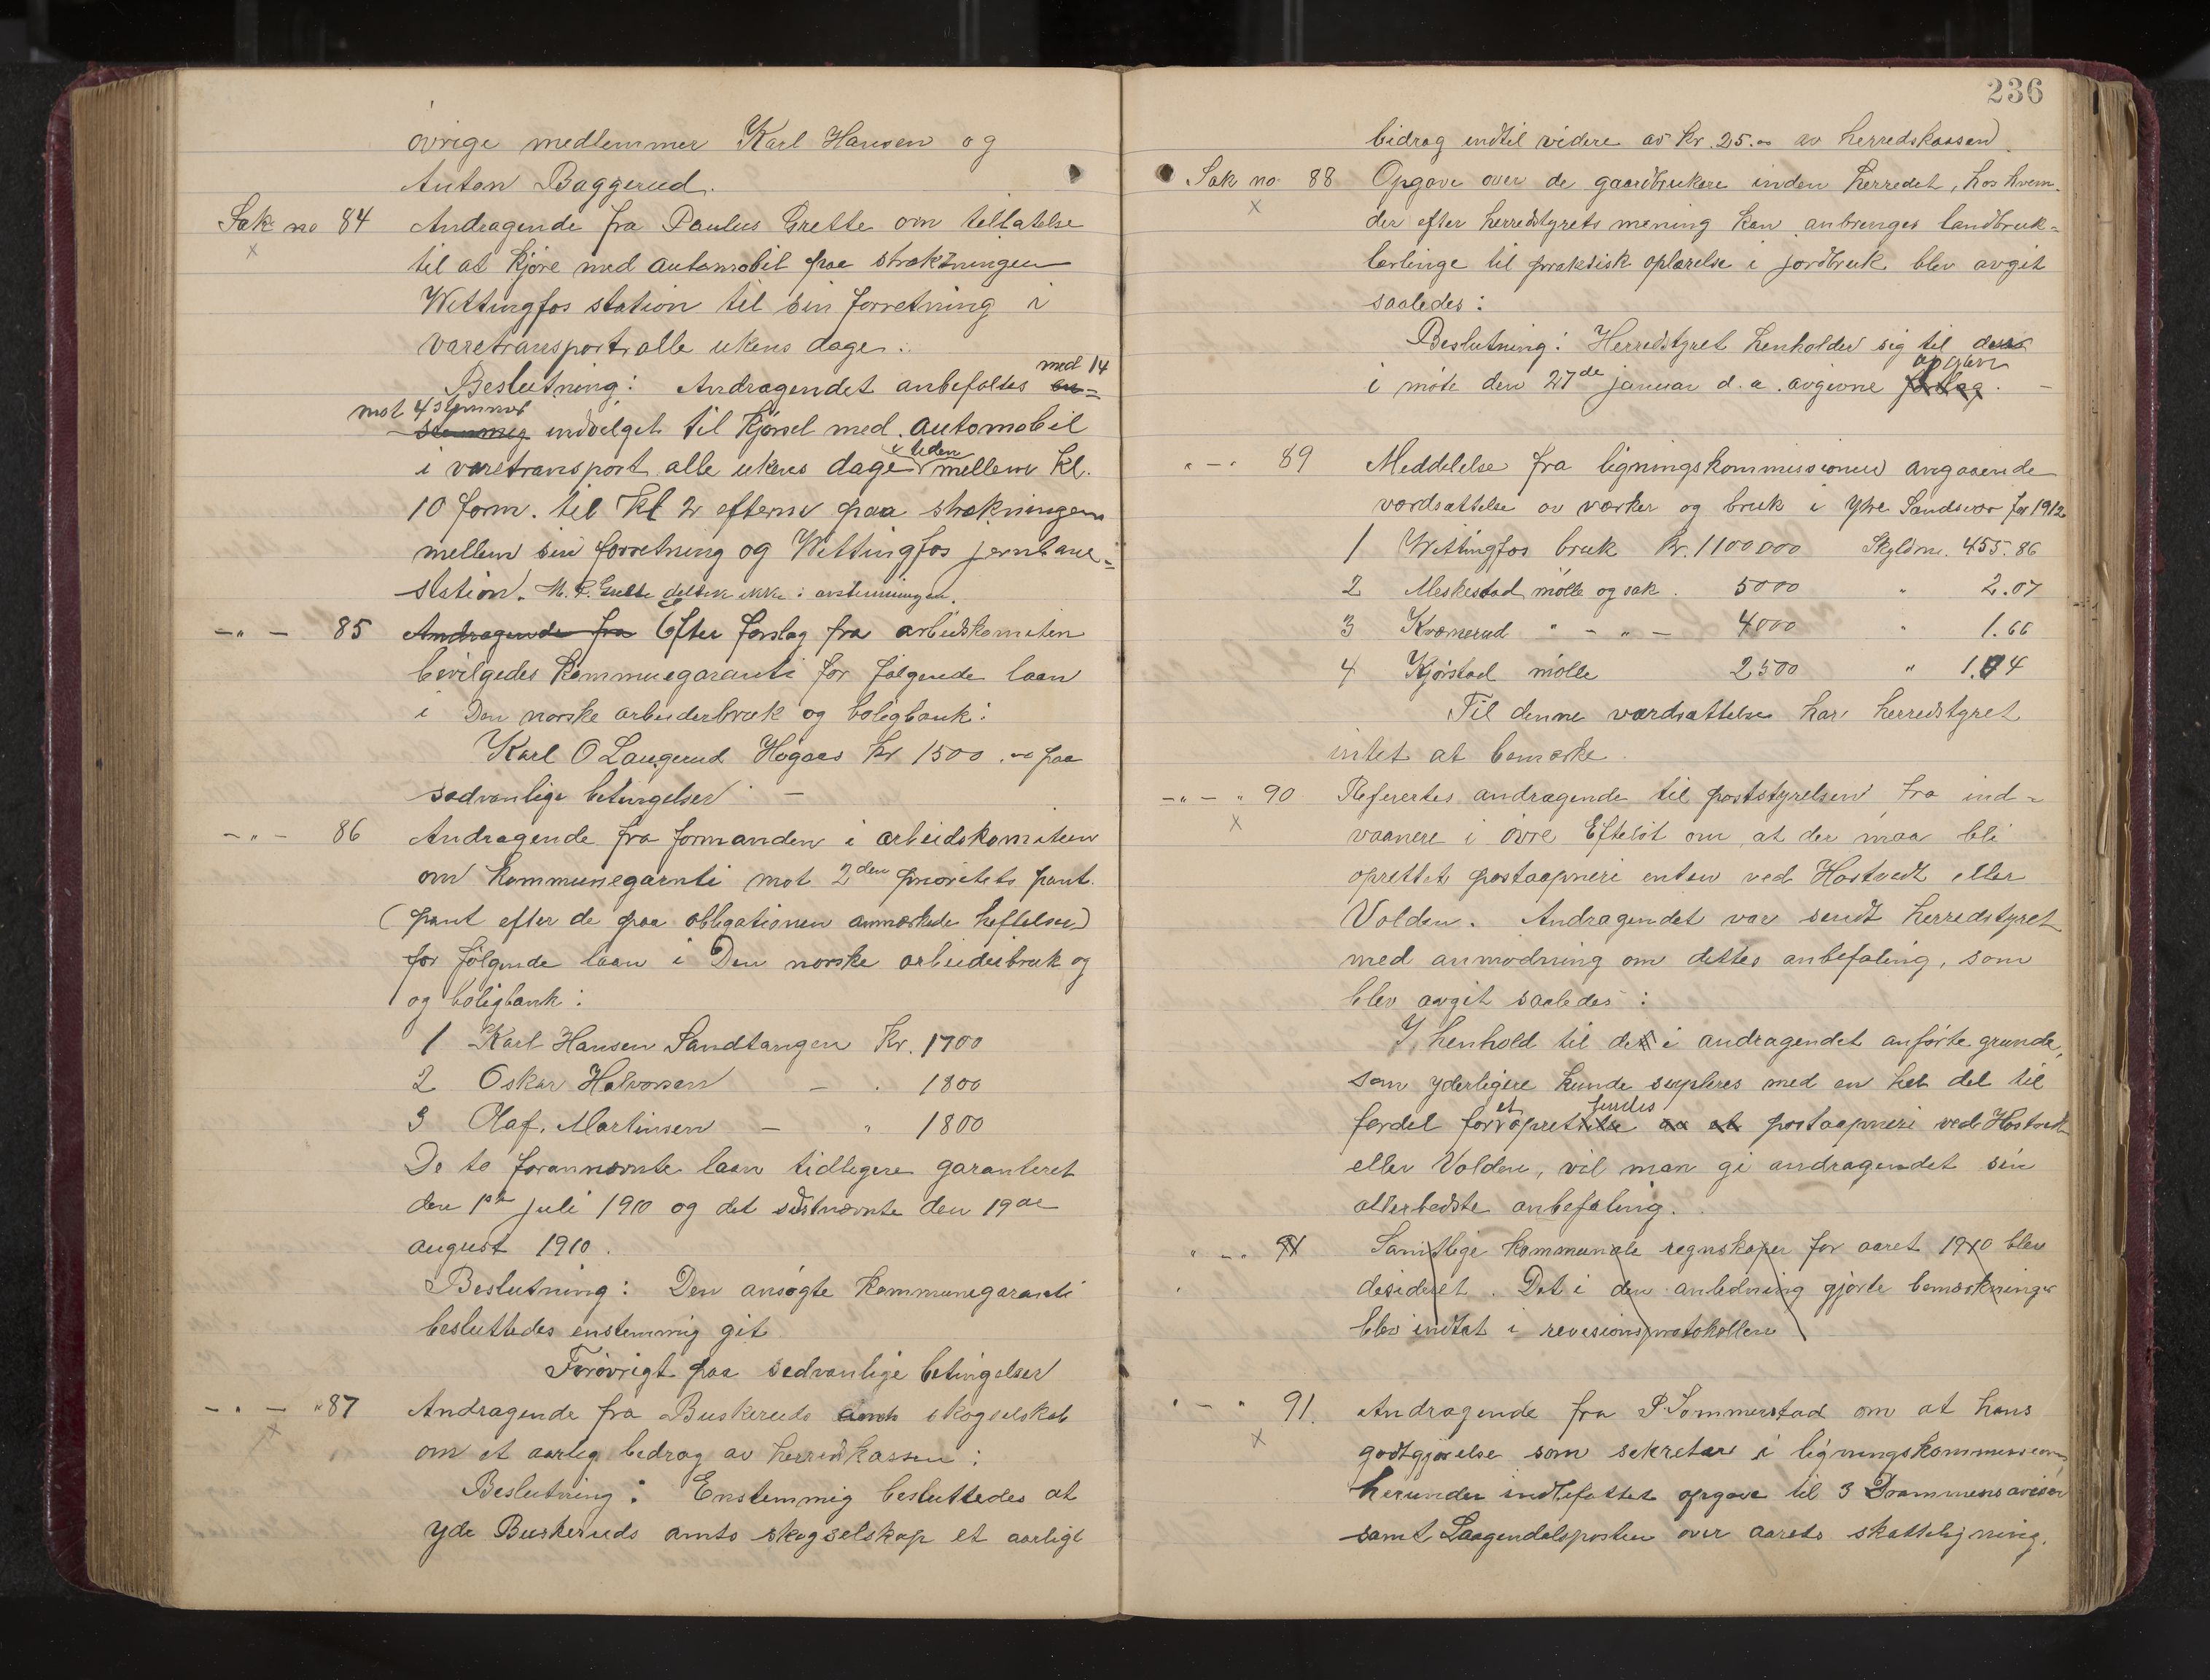 övrige medlemmer Karl Hansen og
Anton Baggerud.
Sak no 84 Andragende fra Paulus Grette om tillatelse
x
til at kjöre med automobil paa strækningen
Wittingfos station til sin forretning i
varetransport alle ukens dage.
Beslutning: Andragendet anbefaltes en= med 14
mot 4 stemmer
stemmig undvelget til kjörsel med automobil
i varetransport alle ukens dage i tiden mellem kl.
10 form. til kl 2 efterm paa strækningen
mellem sin forretning og Wittingfos jernbane=
station. M. P. Grette deltok ikke i avstemningen.
-"- 85 Andragende fra Efter forslag fra arbeidskomiteen
bevilgedes kommunegaranti for fölgende laan
i Den norske arbeiderbruk og boligbank:
Karl O Laugerud Hogaas kr 1500.00 paa
sedvanlige betingelser. -
-"- 86 Andragende fra formanden i arbeidskomiteen
om kommunegarnti mot 2den prioritets pant.
(pant efter de paa obligationen anmærkede heftelser)
for fölgende laan i Den norske arbeiderbruk og
og boligbank:
1 Karl Hansen Sandtangen kr. 1700
2 Oskar Halvorsen - . 1800
3 Olaf. Martinsen - " 1800
De to forannævnte laan tidligere garanteret
den 1ste juli 1910 og det sistnævnte den 19de
august 1910.
Beslutning: Den ansögte kommunegaranti
besluttedes enstemmig git
Forövrigt paa sedvanlige betingelser
-"- "87 Andragende fra Buskeruds amts skogselskab
x
om et aarlig bedrag av herredskassen:
Beslutning: Enstemmig besluttedes at
yde Buskeruds amts skogselskap et aarligt
236
bidrag indtil videre av kr. 25.00 av herredskassen.
Sak no 88 Opgave over de gaardbrukere inden herredet, hos hvem
x
der efter herredstyrets mening kan anbringes landbruk=
lærlinge til praktisk oplærelse i jordbruk blev avgit
saaledes:
Beslutning: Herredstyret henholder sig til dets
i möte den 27de januar d.a. avgivne forslag opgave. -
"-" 89 Meddelelse fra ligningskommissionen angaaende
værdsættelse av værker og bruk i Ytre Sandsvær for 1912
1 Wittingfos bruk kr. 1100000 Skyldm. 455.86
2 Meskestad mölle og sak. 5000 " 2.07
3 Kværnerud " - " - 4000 " 1.66
4 Kjörstad mölle 2500 " 1.04
Til denne værdsættelse har herredstyret
intet at bemærke.
-"- " 90 Refererter andragende til poststyrelsen fra ind=
x
vaanere i övre Eftelöt om at der maa bli
oprettet postaapneri enten ved Hostvedt eller
Volden. Andragendet var sendt herredstyret
med anmodning om dettes anbefaling, som
blev avgit saaledes:
I henhold til de i andragendet anförte grunde,
som yderligere kunde supleres med en hel del til
fordel for et oprettende aa et postaapneri ved Hostvedt
eller Volden, vil man gi andragendet sin
allerbedste anbefaling.
"-" 91 Samtlige kommunale regnskaper for aaret 1910 blev
desideret. Det i den anledning gjorte bemærkninger
blev indtat i revisionsprotokollen
"-" 91. Andragende fra P Sommerstad om at hans
x
godtgjörelse som sekretær i ligningskommissionen
herunder indbefattet opgave til 3 Drammens aviser
samt Laagendalsposten over aarets skatteligning.